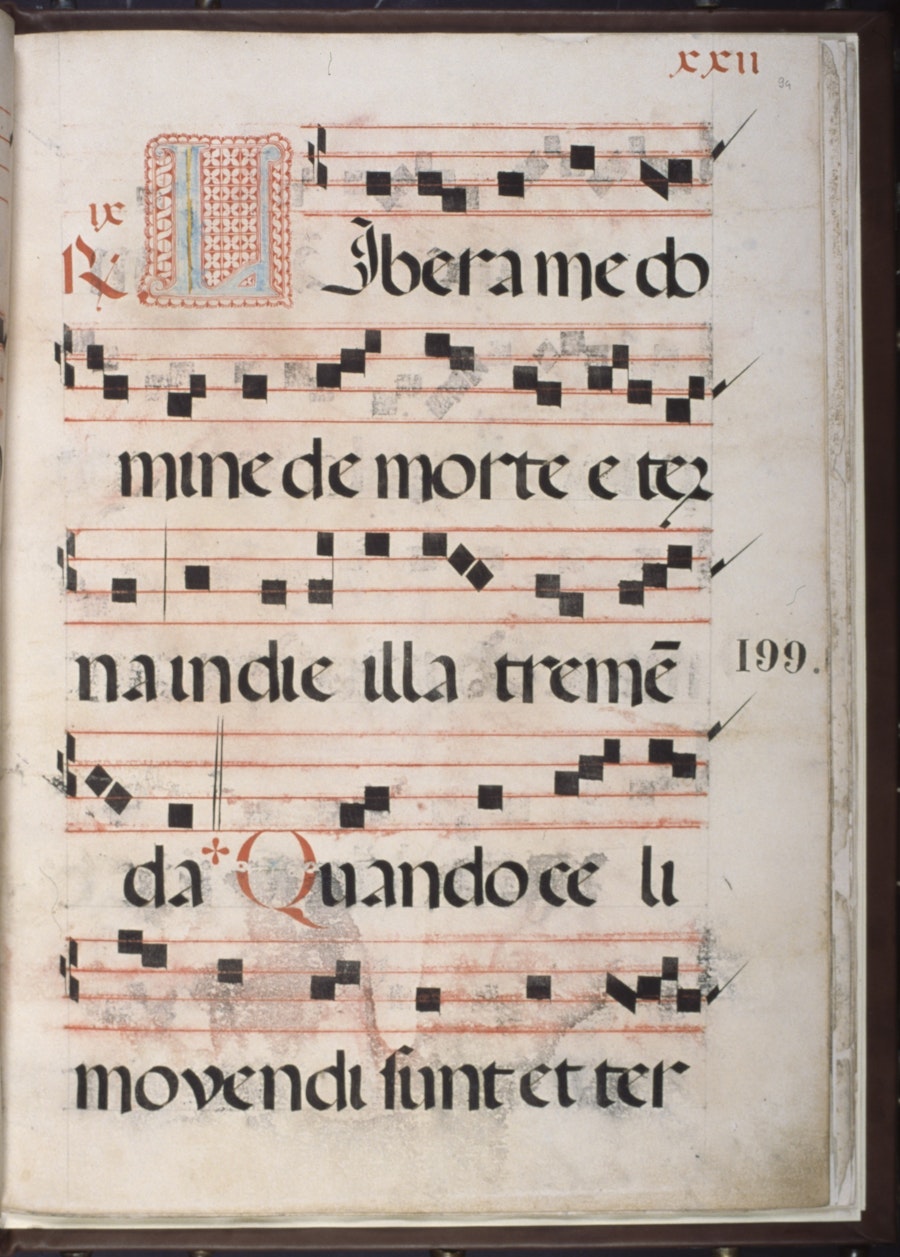 xxII
94
ix
R/. LIbera me do
mine de morte e ter
na in die illa tremē
199.
da * Quando ce li
movendi sunt et ter